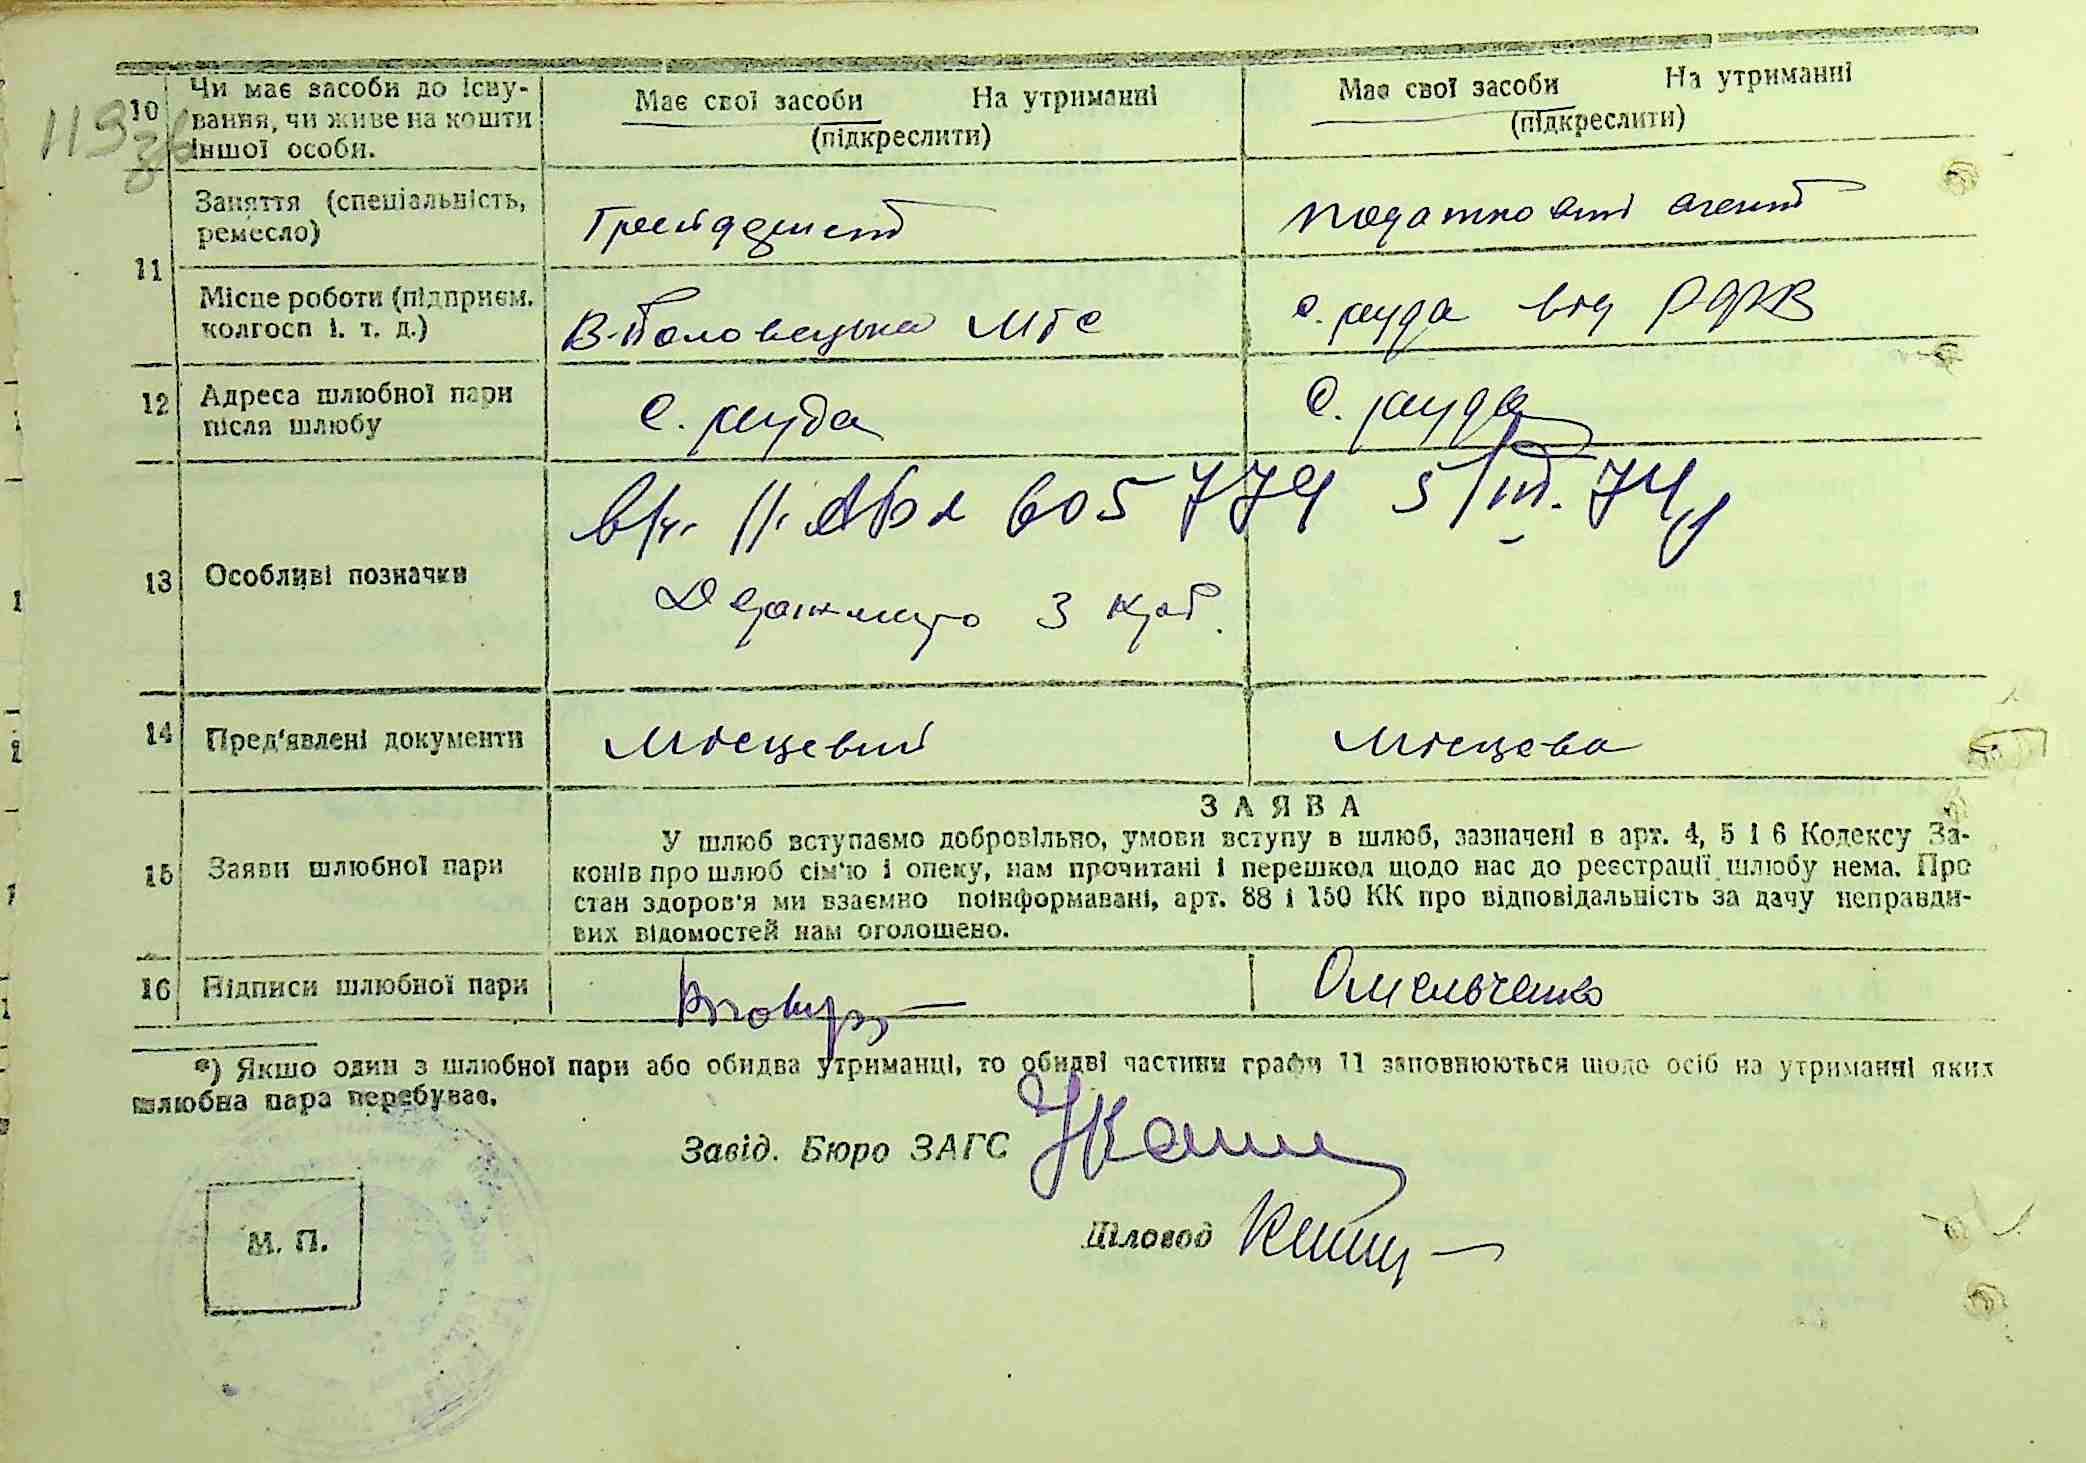 119
10 Чи має засоби до існу-
вання, чи живе на кошти
іншої особи.
Має свої засоби На утриманні
(підкреслити)
Має свої засоби На утриманні
(підкреслити)
11
Заняття (спеціальність,
ремесло)
податковий агент
Місце роботи (підприєм.
колгосп і. т. д.)
В-Половецька МТС
с. Руда від РФВ
12 Адреса шлюбної пари
після шлюбу
с. Руда
с. Руда
13 Особливі позначки
605779 5/III. 74
Держмито 3 крб.
14 Пред'явлені документи
Місцевий
Місцева
15 Заяви шлюбної пари
ЗАЯВА
У шлюб вступаємо добровільно, умови вступу в шлюб, зазначені в арт. 4, 5 і 6 Кодексу За-
конів про шлюб сім'ю і опеку, нам прочитані і перешкод щодо нас до реєстрації шлюбу нема. Про
стан здоров'я ми взаємно поінформавані, арт. 88 і 150 КК про відповідальність за дачу неправди-
вих відомостей нам оголошено.
16 Підписи шлюбної пари
Омельченко
*) Якщо один з шлюбної пари або обидва утриманці, то обидві частини графи 11 заповнюються щодо осіб на утриманні яких
шлюбна пара перебуває.
Завід. Бюро ЗАГС
Діловод
М. П.